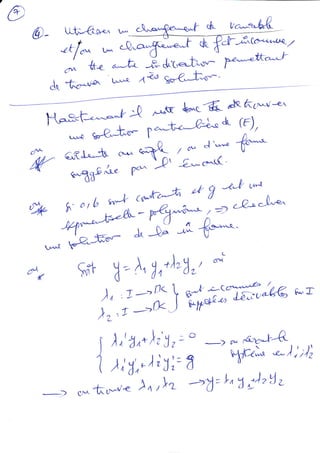 7
④- Utiliser un changement de variable
et/ou un changement de fct inconnue,
ou une autre indication permettant
de trouver une 1ère solution.
Maintenant il reste de trouver
une solution particulière de (E),
ou
* évidente ou simple, ou d'une forme
suggérée par l'énoncé.
ou
* Si a, b sont constants et g est une
exponentielle-polynôme, => chercher
une solution de la même forme.
ou
* Soit y = λ₁y₁ + λ₂y₂, où
λ₁ : I → K
λ₂ : I → K } sont inconnues, supposées dérivables sur I
{ λ₁'y₁ + λ₂'y₂ = 0
λ₁'y₁' + λ₂'y₂' = g → on résout le système en λ₁', λ₂'
→ on trouve λ₁, λ₂ → y = λ₁y₁ + λ₂y₂